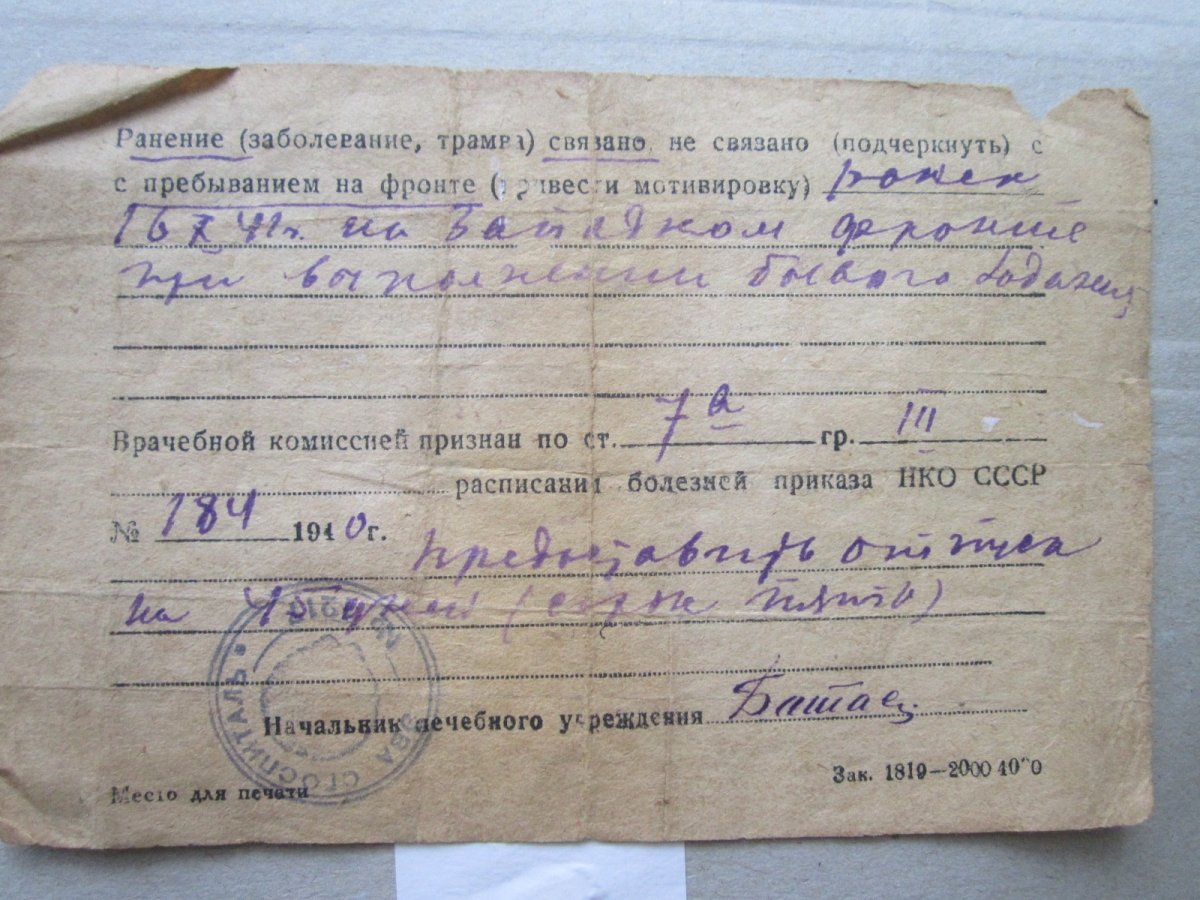 Ранение (заболевание, трамва) связано, не связано (подчеркнуть) с
с пребыванием на фронте (привести мотивировку) ранен
16 X 41 г. на Западном фронте
при выполнении боевого задания
Врачебной комиссией признан по ст. 7а гр. III
расписания болезней приказа НКО СССР
№ 184 1940 г.
предоставить отпуск
на 45 дней (сорок пять)
Начальник лечебного учреждения
ГОСПИТАЛЬ
Зак. 1819—2000
Место для печати